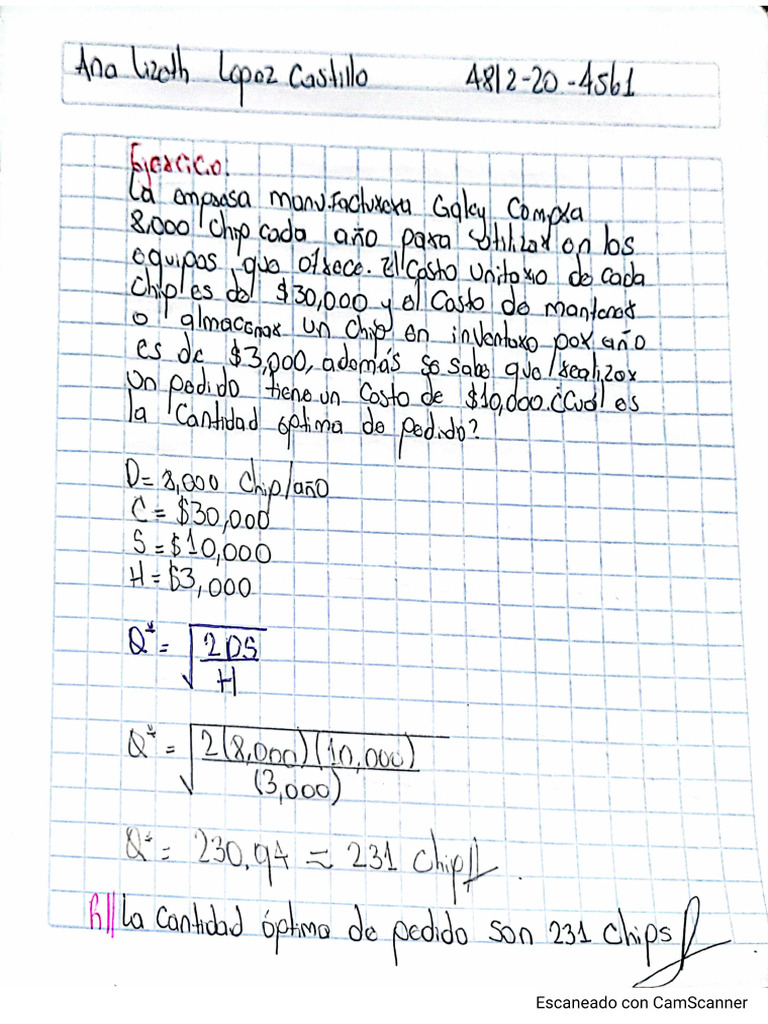 Ana Lizeth Lopez Castillo 4812-20-4561
Ejercicio:
La empresa manufacturera Gqlcy Compra
8,000 Chip cada año para utilizar en los
equipos que ofrece. El Costo unitario de cada
Chip es del $30,000 y el Costo de mantener
o almacenar un Chip en inventaro por año
es de $3,000, además se sabe que realizar
un pedido tiene un Costo de $10,000. ¿Cuál es
la Cantidad óptima de pedido?
D= 8,000 Chip/año
C = $30,000
S = $10,000
H = $3,000
Q* = √2DS
H
Q* = √2(8,000)(10,000)
(3,000)
Q* = 230.94 ≈ 231 Chip//
R// La Cantidad óptima de pedido son 231 Chips
Escaneado con CamScanner